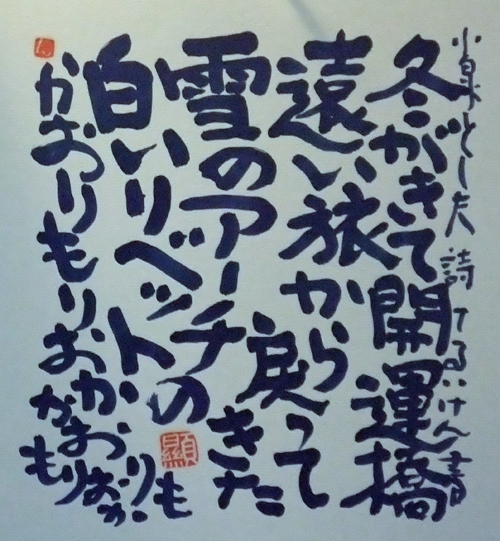 小泉とし夫 詩 てるいけん書
冬がきて開運橋
遠い旅から戻って
きた
雪のアーチの
白いリベット
かおりもりおか
かおりも
りおか
顯